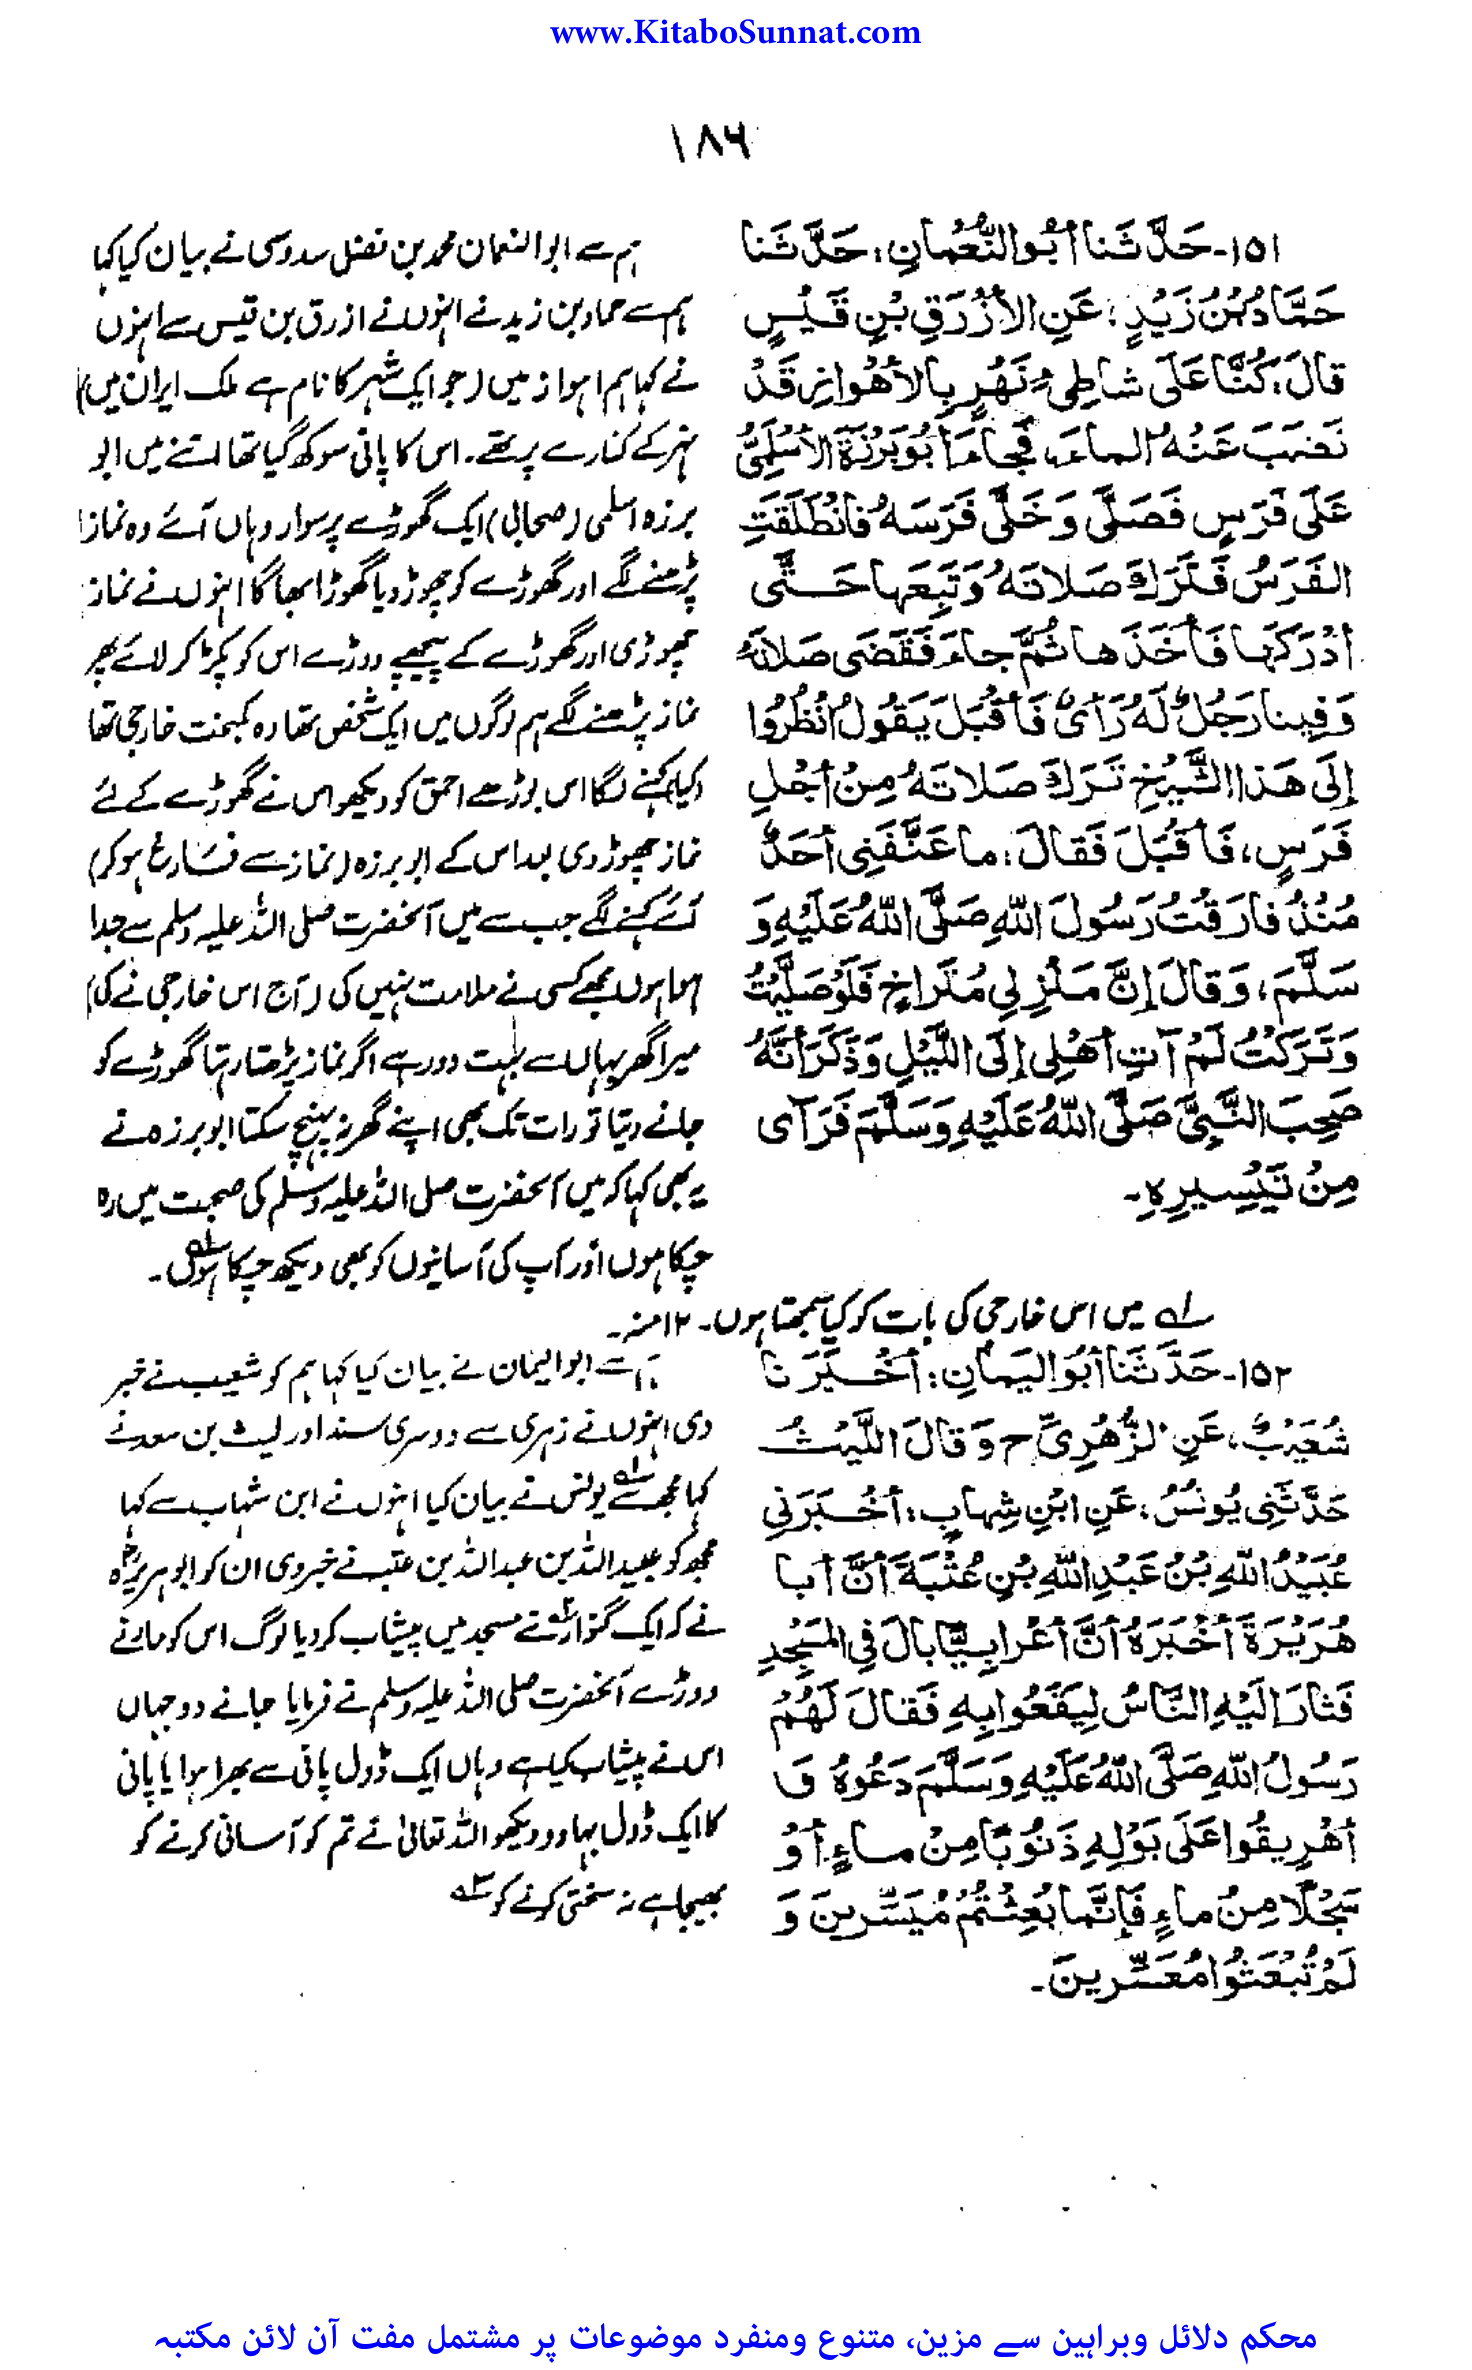 www.KitaboSunnat.com
۱۸۶
۱۵۱- حَدَّثَنا أَبُو النُّعْمانِ، حَدَّثَنا
حَمَّادُ بْنُ زَيْدٍ، عَنِ الأَزْرَقِ بْنِ قَيْسٍ
قالَ، كُنَّا عَلَى شاطِىءِ نَهْرٍ بِالأَهْوازِ قَدْ
نَضَبَ عَنْهُ الماءُ، فَجاءَ أَبُو بَرْزَةَ الأَسْلَمِيُّ
عَلَى فَرَسٍ فَصَلَّى وَخَلَّى فَرَسَهُ فانْطَلَقَتِ
الفَرَسُ فَتَرَكَ صَلاتَهُ وَتَبِعَها حَتَّى
أَدْرَكَها فَأَخَذَها ثُمَّ جاءَ فَقَضَى صَلاتَهُ
وَفِينا رَجُلٌ لَهُ رَأْىٌ فَأَقْبَلَ يَقُولُ انْظُرُوا
إِلَى هَذا الشَّيْخِ تَرَكَ صَلاتَهُ مِنْ أَجْلِ
فَرَسٍ، فَأَقْبَلَ فَقالَ، ما عَنَّفَنِى أَحَدٌ
مُنْذُ فارَقْتُ رَسُولَ اللّٰهِ صَلَّى اللّٰهُ عَلَيْهِ وَ
سَلَّمَ، وَقالَ إِنَّ مَنْزِلِى مُتَراخٍ فَلَوْ صَلَّيْتُ
وَتَرَكْتُ لَمْ آتِ أَهْلِى إِلَى اللَّيْلِ وَذَكَرَ أَنَّهُ
صَحِبَ النَّبِىَّ صَلَّى اللّٰهُ عَلَيْهِ وَسَلَّمَ فَرَآى
مِنْ تَيْسِيرِهِ-
ہم سے ابو النعمان محمد بن فضل سدوسی نے بیان کیا کہا
ہم سے حماد بن زید نے انہوں نے ازرق بن قیس سے انہوں
نے کہا ہم اہواز میں (جو ایک شہر کا نام ہے ملک ایران میں)
نہر کے کنارے پر تھے۔ اس کا پانی سوکھ گیا تھا اتنے میں ابو
برزہ اسلمی (صحابی) ایک گھوڑے پر سوار وہاں آئے وہ نماز
پڑھنے لگے اور گھوڑے کو چھوڑ دیا گھوڑا بھاگا انہوں نے نماز
چھوڑی اور گھوڑے کے پیچھے دوڑے اس کو پکڑ کر لائے پھر
نماز پڑھنے لگے ہم لوگوں میں ایک شخص تھا وہ کمبخت خارجی تھا
کیا کہنے لگا اس بوڑھے احمق کو دیکھو اس نے گھوڑے کے لئے
نماز چھوڑ دی بعد اس کے ابو برزہ (نماز سے فارغ ہو کر)
آئے کہنے لگے جب سے میں آنحضرت صلی اللہ علیہ وسلم سے جدا
ہوا ہوں مجھے کسی نے ملامت نہیں کی (آج اس خارجی نے کی)
میرا گھر یہاں سے بہت دور ہے اگر نماز پڑھتا رہتا گھوڑے کو
جانے دیتا تو رات تک بھی اپنے گھر نہ پہنچ سکتا ابو برزہ نے
یہ بھی کہا کہ میں آنحضرت صلی اللہ علیہ وسلم کی صحبت میں رہ
چکا ہوں اور آپ کی آسانیوں کو بھی دیکھ چکا ہوں لہ۔
لہ میں اس خارجی کی بات کو کیا سمجھتا ہوں۔ ۱۲ منہ۔
۱۵۲- حَدَّثَنا أَبُو اليَمانِ، أَخْبَرَنا
شُعَيْبٌ، عَنِ الزُّهْرِىِّ ح وَقالَ اللَّيْثُ
حَدَّثَنِى يُونُسُ، عَنِ ابْنِ شِهابٍ، أَخْبَرَنِى
عُبَيْدُ اللّٰهِ بْنُ عَبْدِ اللّٰهِ بْنِ عُتْبَةَ أَنَّ أَبا
هُرَيْرَةَ أَخْبَرَهُ أَنَّ أَعْرابِيًّا بالَ فِى المَسْجِدِ
فَثارَ إِلَيْهِ النَّاسُ لِيَقَعُوا بِهِ فَقالَ لَهُمْ
رَسُولُ اللّٰهِ صَلَّى اللّٰهُ عَلَيْهِ وَسَلَّمَ دَعُوهُ وَ
أَهْرِيقُوا عَلَى بَوْلِهِ ذَنُوبًا مِنْ ماءٍ أَوْ
سَجْلًا مِنْ ماءٍ فَإِنَّما بُعِثْتُمْ مُيَسِّرِينَ وَ
لَمْ تُبْعَثُوا مُعَسِّرِينَ-
ہم سے ابو الیمان نے بیان کیا کہا ہم کو شعیب نے خبر
دی انہوں نے زہری سے دوسری سند اور لیث بن سعد نے
کہا مجھ سے یونس نے بیان کیا انہوں نے ابن شہاب سے کہا
مجھ کو عبید اللہ بن عبد اللہ بن عتبہ نے خبر دی ان کو ابو ہریرہؓ
نے کہ ایک گنوار نے مسجد میں پیشاب کر دیا لوگ اس کو مارنے
دوڑے آنحضرت صلی اللہ علیہ وسلم نے فرمایا جانے دو جہاں
اس نے پیشاب کیا ہے وہاں ایک ڈول پانی سے بھرا ہوا یا پانی
کا ایک ڈول بہا دو دیکھو اللہ تعالیٰ نے تم کو آسانی کرنے کو
بھیجا ہے نہ سختی کرنے کو
محکم دلائل وبراہین سے مزین، متنوع ومنفرد موضوعات پر مشتمل مفت آن لائن مکتبہ